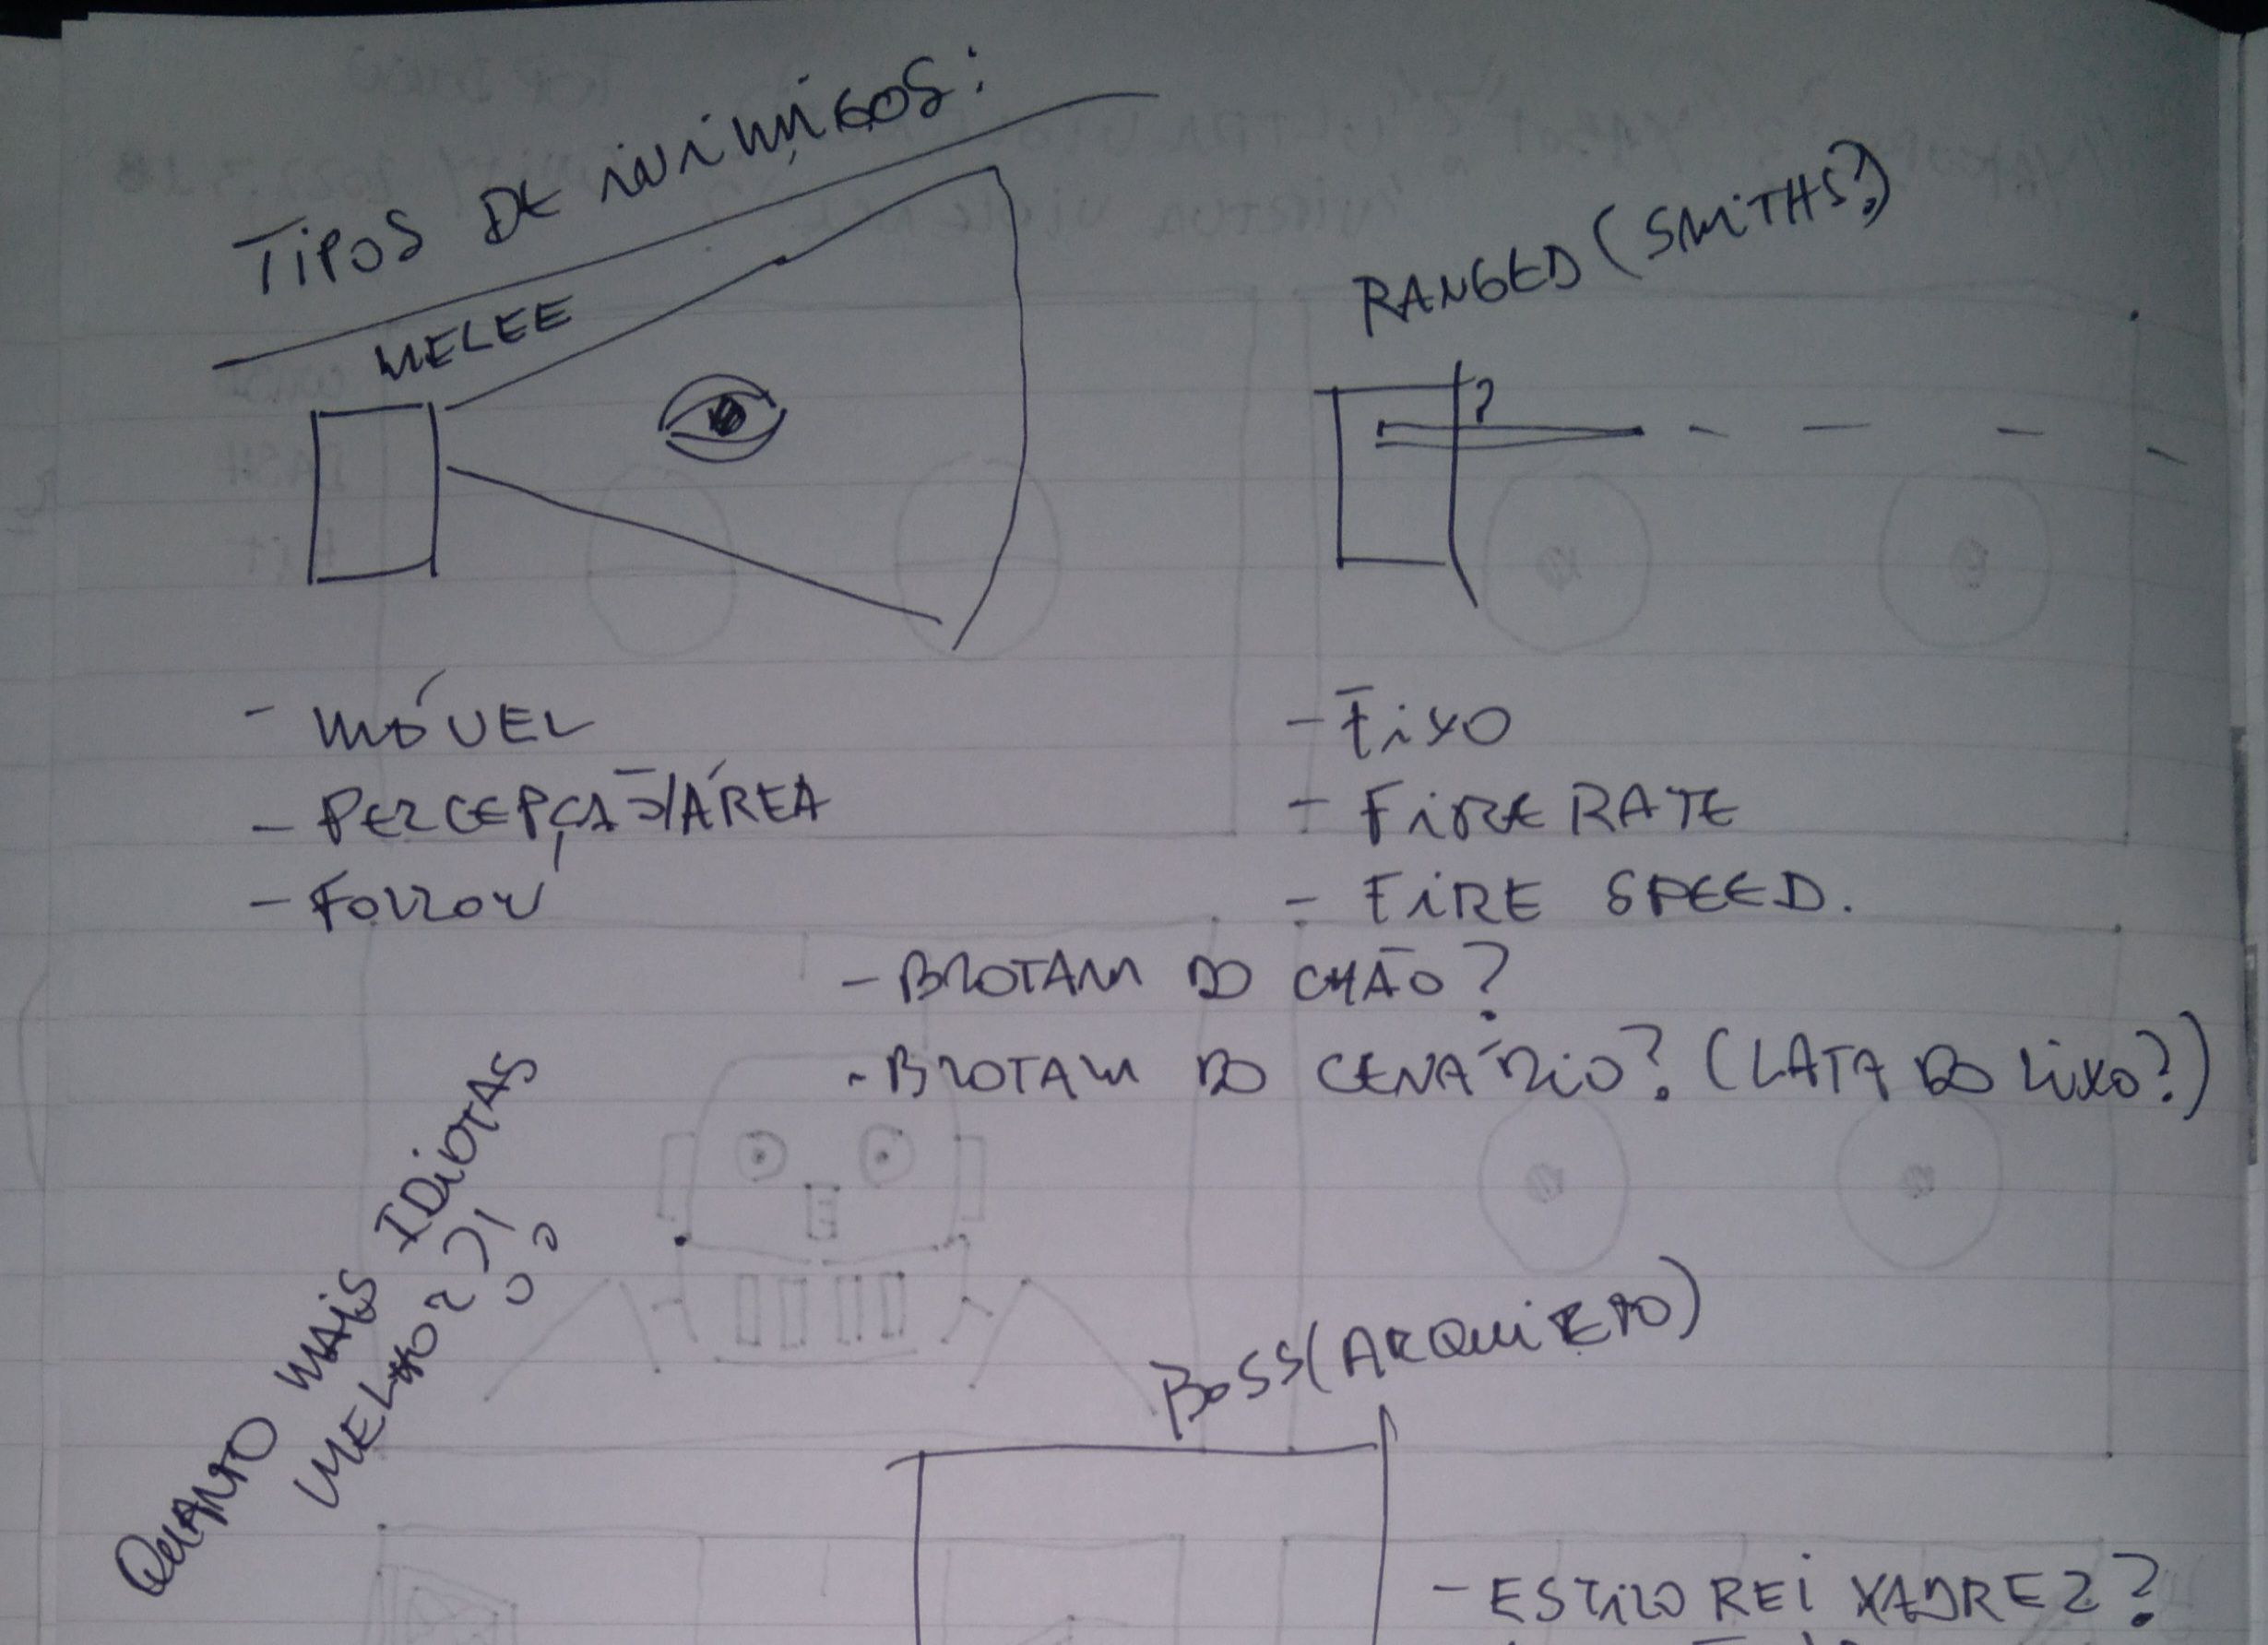 TIPOS DE INIMIGOS:
MELEE
RANGED (SMITHS?)
?
- MÓVEL
- PERCEPÇÃO/ÁREA
- FOLLOW
- FIXO
- FIRE RATE
- FIRE SPEED.
- BROTAM DO CHÃO?
- BROTAM DO CENÁRIO? (LATA DO LIXO?)
QUANTO MAIS IDIOTAS
MELHOR?!
BOSS (ARQUITETO)
- ESTILO REI XADREZ?